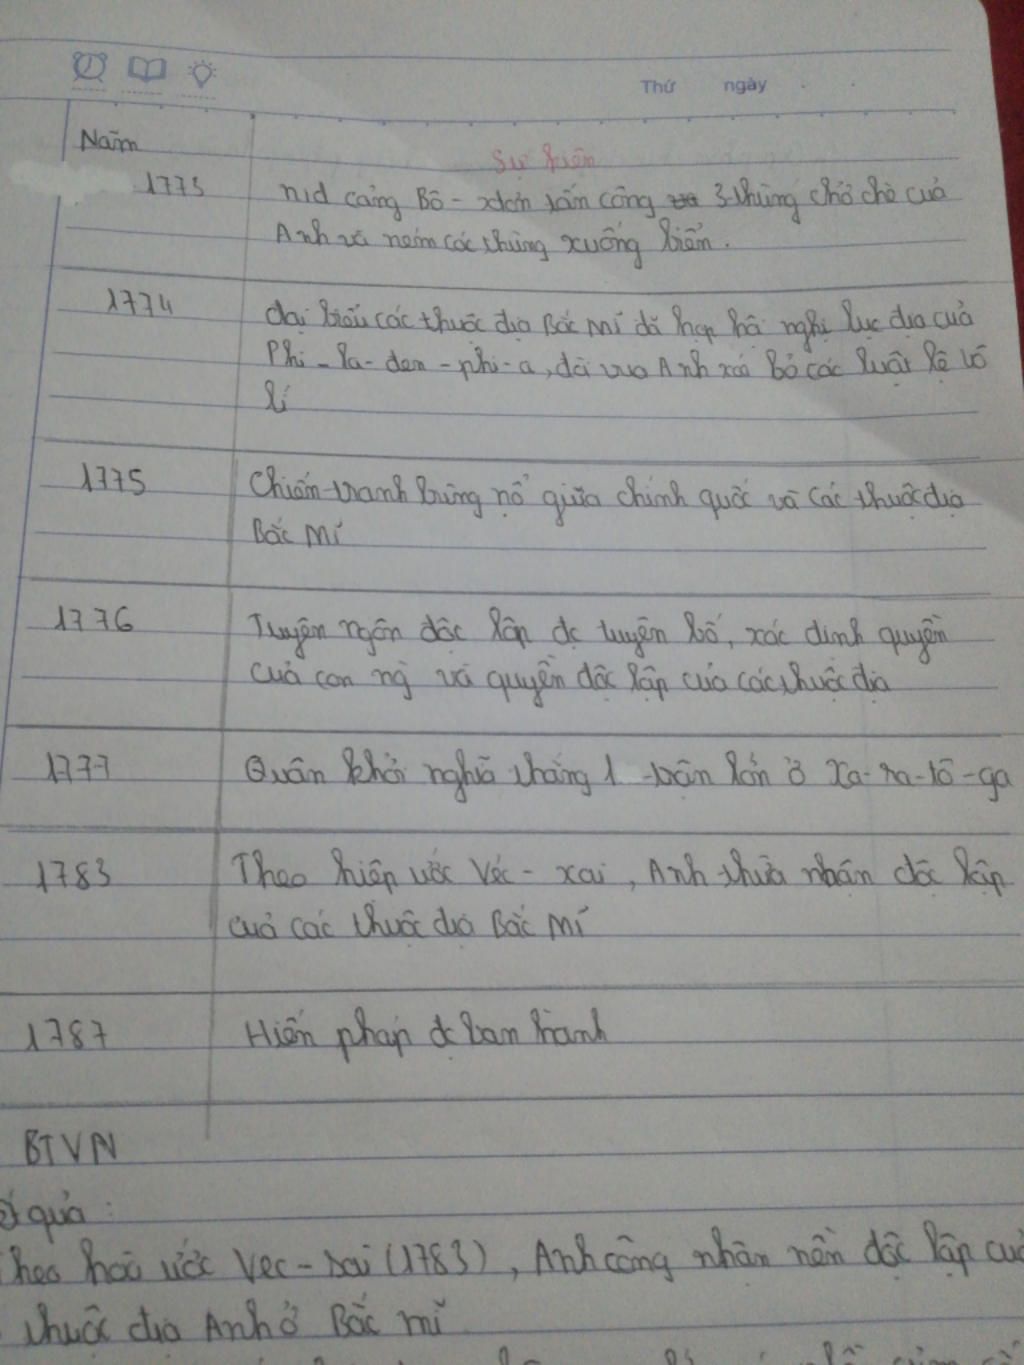 Thứ ngày
Năm
Sự kiện
1773 nd cảng Bô-xtơn tấn công 3 thùng chở chè của
Anh và ném các thùng xuống biển.
1774 đại biểu các thuộc địa Bắc Mĩ đã họp hội nghị lục địa của
Phi-la-đen-phi-a, đòi vua Anh xoá bỏ các luật lệ vô
lí
1775 Chiến tranh bùng nổ giữa chính quốc và các thuộc địa
Bắc Mĩ
1776 Tuyên ngôn độc lập đc tuyên bố, xác định quyền
của con ng và quyền độc lập của các thuộc địa
1777 Quân khởi nghĩa thắng 1 trận lớn ở Xa-ra-tô-ga
1783 Theo hiệp ước Véc-xai, Anh thừa nhận độc lập
của các thuộc địa Bắc Mĩ
1787 Hiến pháp đc ban hành
BTVN
quả:
Theo hoà ước Vec-xai (1783), Anh công nhận nền độc lập của
thuộc địa Anh ở Bắc mĩ